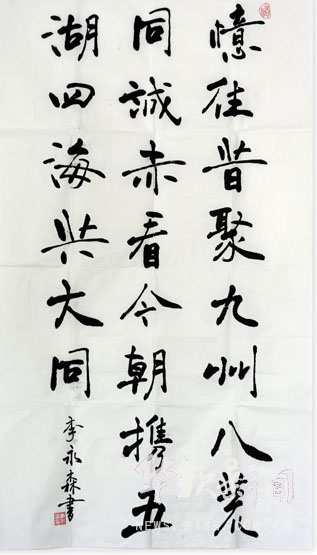 憶往昔聚九州八荒
同誠赤看今朝携五
湖四海共大同
李永森書